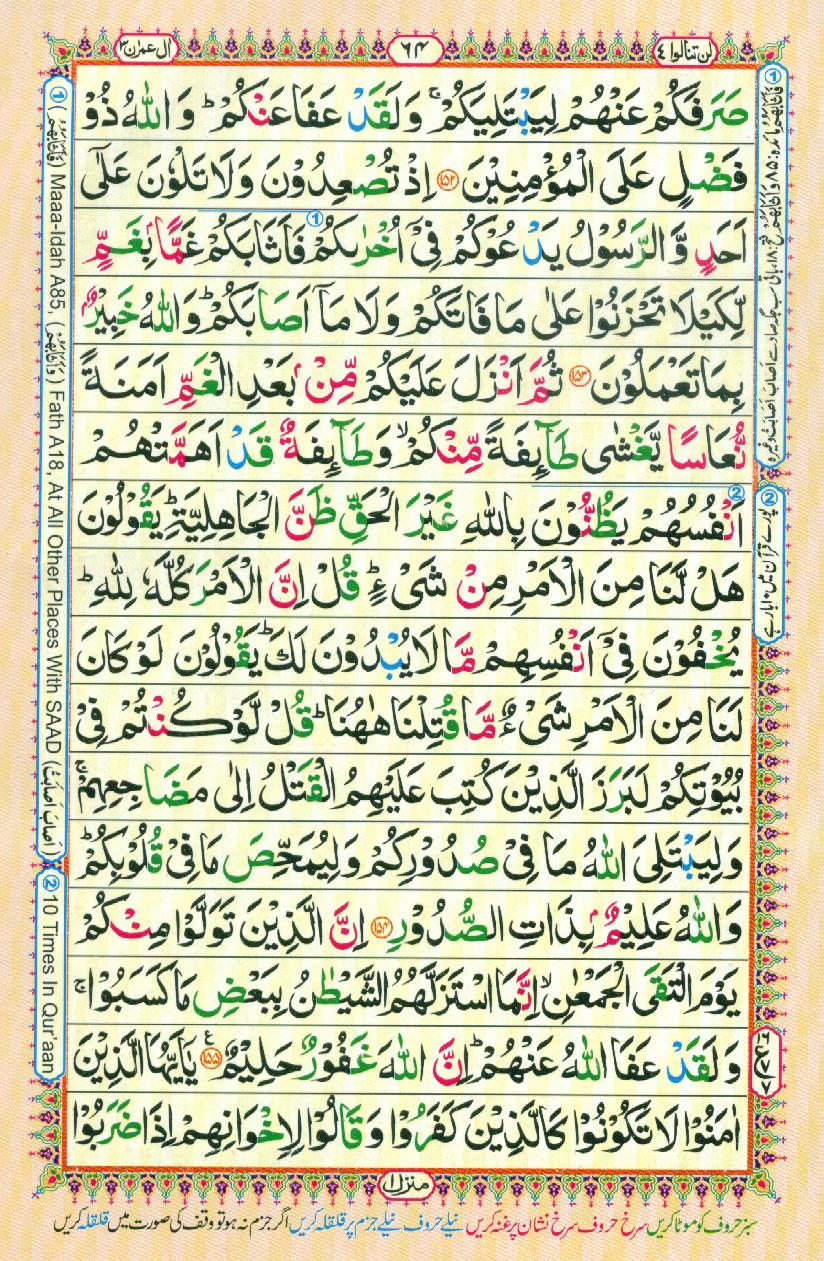 لن تنالوا ٤
٦٤
ال عمرٰن ٣
صَرَفَكُمْ عَنْهُمْ لِيَبْتَلِيَكُمْ ۚ وَ لَقَدْ عَفَا عَنْكُمْ ؕ وَ اللّٰهُ ذُوْ
فَضْلٍ عَلَى الْمُؤْمِنِيْنَ ﴿۱۵۲﴾ اِذْ تُصْعِدُوْنَ وَ لَا تَلْوٗنَ عَلٰۤى
اَحَدٍ وَّ الرَّسُوْلُ يَدْعُوْكُمْ فِيْۤ اُخْرٰىكُمْ فَاَثَابَكُمْ غَمًّۢا بِغَمٍّ
لِّكَيْلَا تَحْزَنُوْا عَلٰى مَا فَاتَكُمْ وَ لَا مَاۤ اَصَابَكُمْ ؕ وَ اللّٰهُ خَبِيْرٌۢ
بِمَا تَعْمَلُوْنَ ﴿۱۵۳﴾ ثُمَّ اَنْزَلَ عَلَيْكُمْ مِّنْۢ بَعْدِ الْغَمِّ اَمَنَةً
نُّعَاسًا يَّغْشٰى طَآئِفَةً مِّنْكُمْ ۙ وَ طَآئِفَةٌ قَدْ اَهَمَّتْهُمْ
اَنْفُسُهُمْ يَظُنُّوْنَ بِاللّٰهِ غَيْرَ الْحَقِّ ظَنَّ الْجَاهِلِيَّةِ ؕ يَقُوْلُوْنَ
هَلْ لَّنَا مِنَ الْاَمْرِ مِنْ شَیْءٍ ؕ قُلْ اِنَّ الْاَمْرَ كُلَّهٗ لِلّٰهِ ؕ
يُخْفُوْنَ فِيْۤ اَنْفُسِهِمْ مَّا لَا يُبْدُوْنَ لَكَ ؕ يَقُوْلُوْنَ لَوْ كَانَ
لَنَا مِنَ الْاَمْرِ شَیْءٌ مَّا قُتِلْنَا هٰهُنَا ؕ قُلْ لَّوْ كُنْتُمْ فِيْ
بُيُوْتِكُمْ لَبَرَزَ الَّذِيْنَ كُتِبَ عَلَيْهِمُ الْقَتْلُ اِلٰى مَضَاجِعِهِمْ ۚ
وَ لِيَبْتَلِيَ اللّٰهُ مَا فِيْ صُدُوْرِكُمْ وَ لِيُمَحِّصَ مَا فِيْ قُلُوْبِكُمْ ؕ
وَ اللّٰهُ عَلِيْمٌۢ بِذَاتِ الصُّدُوْرِ ﴿۱۵۴﴾ اِنَّ الَّذِيْنَ تَوَلَّوْا مِنْكُمْ
يَوْمَ الْتَقَى الْجَمْعٰنِ ۙ اِنَّمَا اسْتَزَلَّهُمُ الشَّيْطٰنُ بِبَعْضِ مَا كَسَبُوْا ۚ
وَ لَقَدْ عَفَا اللّٰهُ عَنْهُمْ ؕ اِنَّ اللّٰهَ غَفُوْرٌ حَلِيْمٌ ﴿۱۵۵﴾ يٰۤاَيُّهَا الَّذِيْنَ
اٰمَنُوْا لَا تَكُوْنُوْا كَالَّذِيْنَ كَفَرُوْا وَ قَالُوْا لِاِخْوَانِهِمْ اِذَا ضَرَبُوْا
① (فَاَثَابَهُمْ) Maaa-Idah A85, (وَاَثَابَهُمْ) Fath A18, At All Other Places With SAAD (اَصَابَ اَصَابَتْ)
② 10 Times In Qur'aan
② پورے قرآن میں ۱۰ بار ہے
منزل ۱
سبز حروف کو موٹا کریں سرخ حروف سرخ نشان پر غنہ کریں نیلے حروف نیلے جزم پر قلقلہ کریں اگر جزم نہ ہو تو وقف کی صورت میں قلقلہ کریں